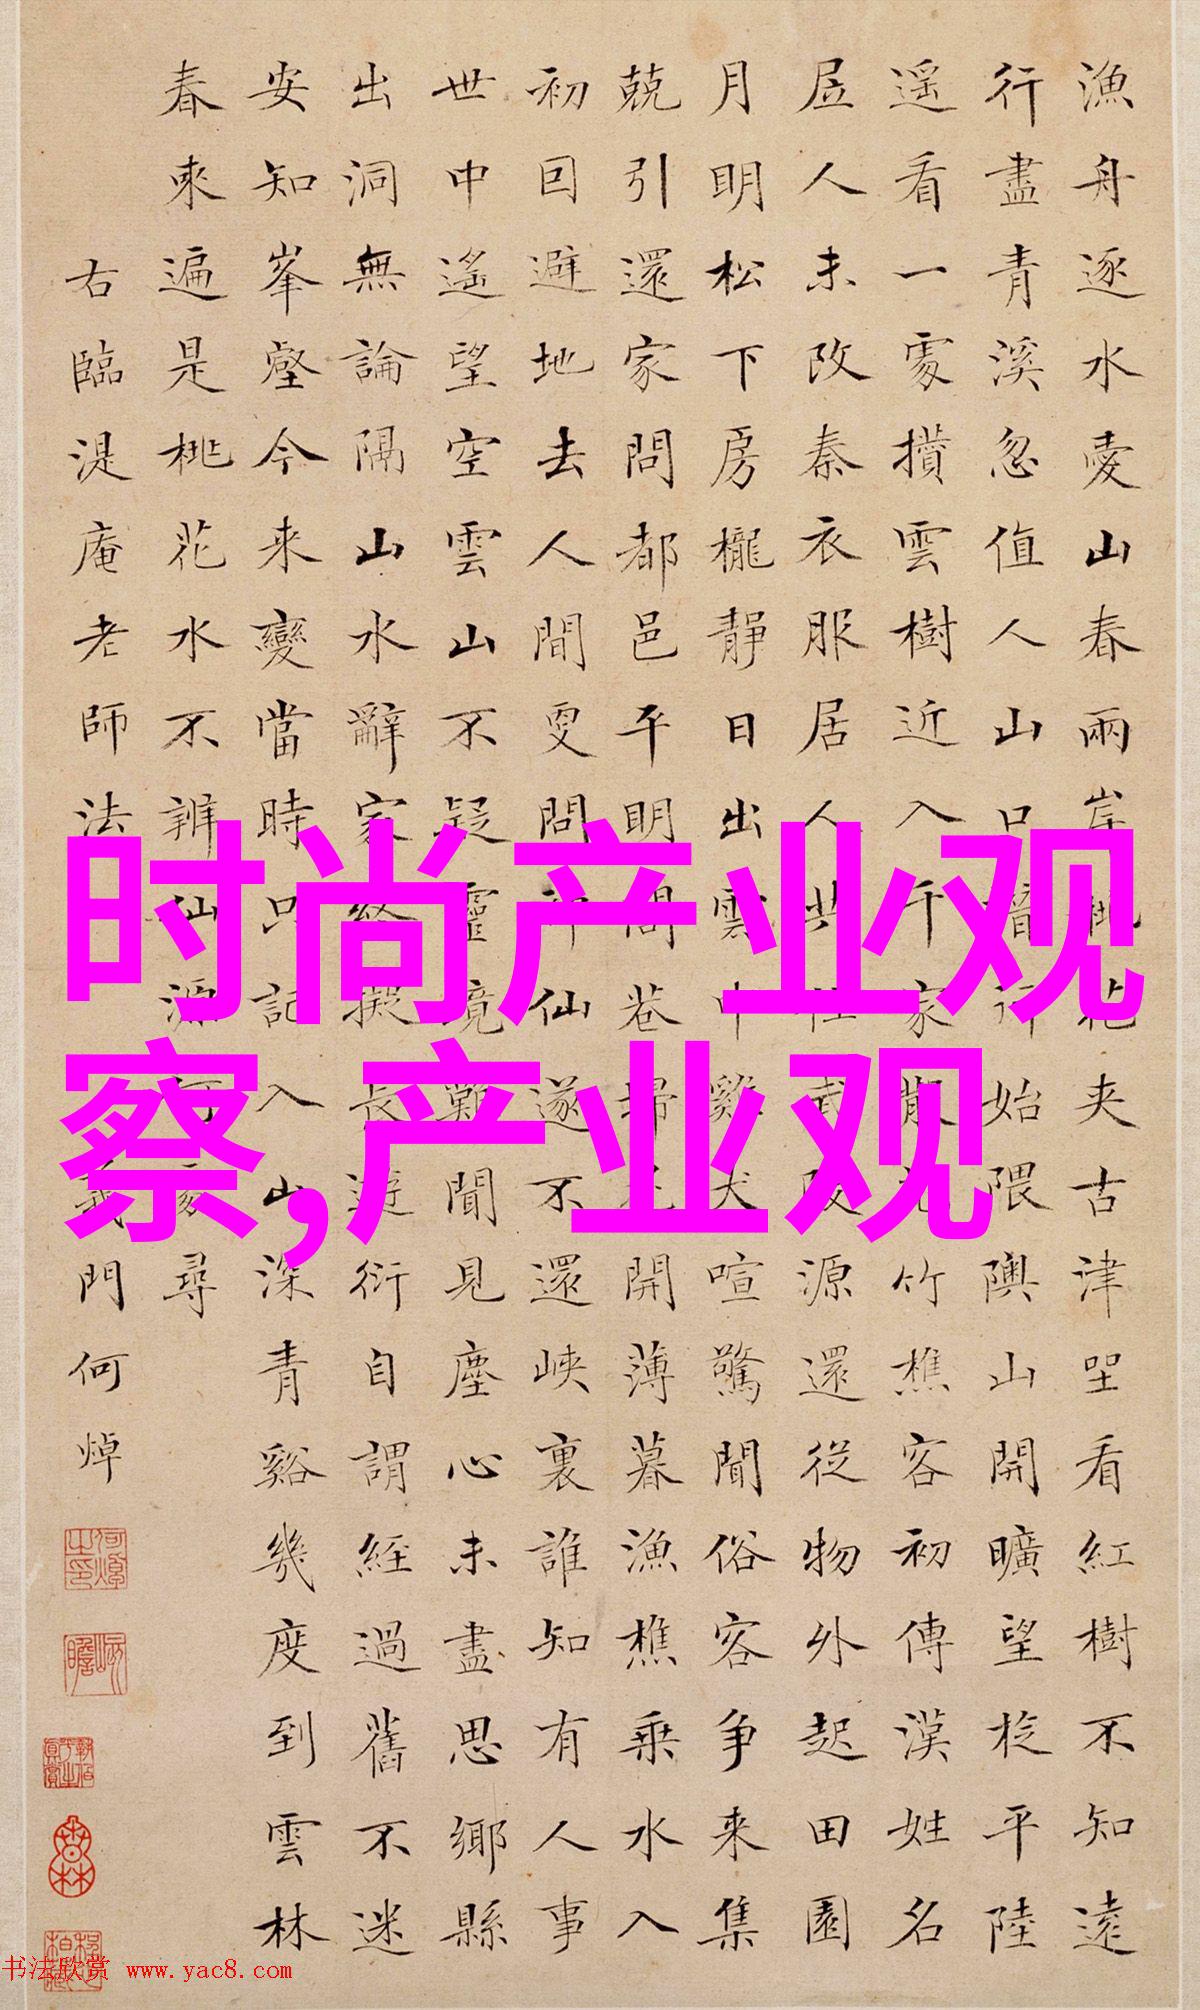 漁舟逐水愛山春兩岸桃花夾古津坐看紅樹不知遠
行盡青溪忽值人山口潛行始隈隩山開曠望旋平陸
遥看一處攅雲樹近入千家散花竹樵客初傳漢姓名
居人未改秦衣服居人共住武陵源還從物外起田園
月明松下房櫳靜日出雲中雞犬喧驚聞俗客争来集
兢引還家問都邑平明閭巷掃花開薄暮漁樵乘水入
初因避地去人間更問神仙遂不還峽裏誰知有人事
世中遙望空雲山不疑靈境難聞見塵心未盡思鄉縣
出洞無論隔山水辭家終擬長遊衍自謂經過舊不迷
安知峯壑今来變當時只記入山深青谿幾度到雲林
春來遍是桃花水不辨仙源何處尋
右臨湜庵老師法義門何焯
时尚产业观
察,产业观
书法欣赏 www.yac8.com